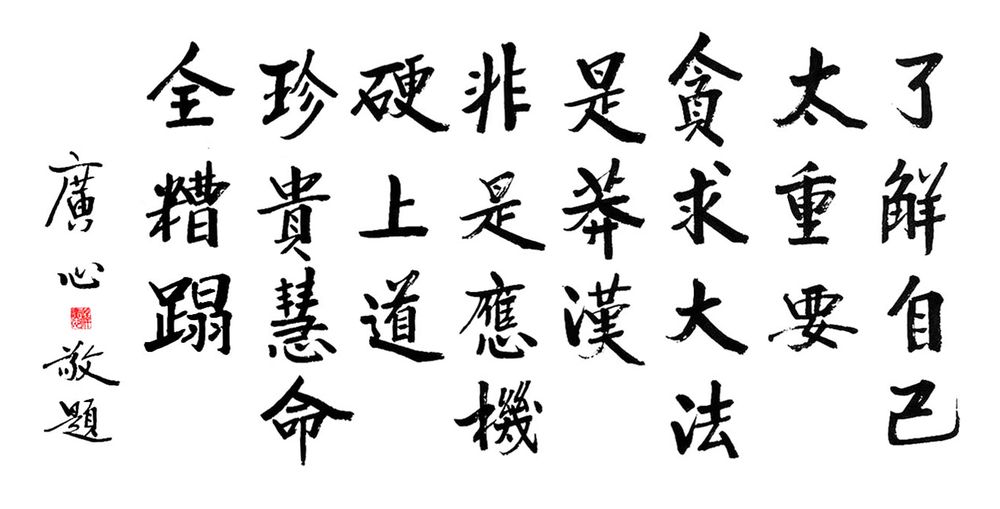 了解自己
太重要
貪求大法
是莽漢
非是應機
硬上道
珍貴慧命
全糟蹋
廣心
敬題